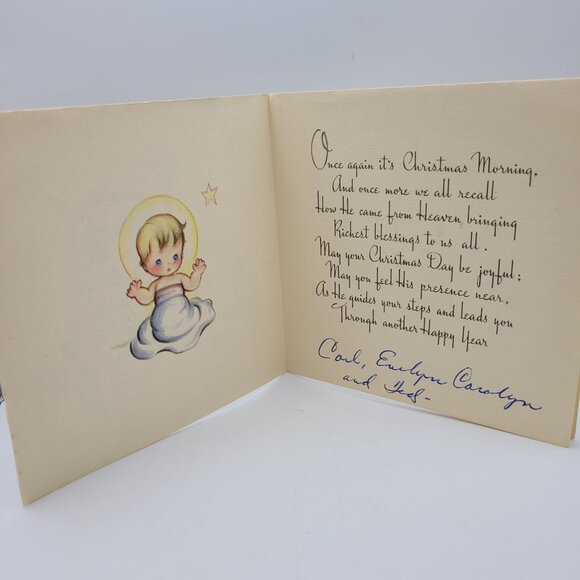 Once again it's Christmas Morning,
And once more we all recall
How He came from Heaven bringing
Richest blessings to us all.
May your Christmas Day be joyful:
May you feel His presence near,
As He guides your steps and leads you
Through another Happy Year
Carl, Evelyn Carolyn
and Ted-